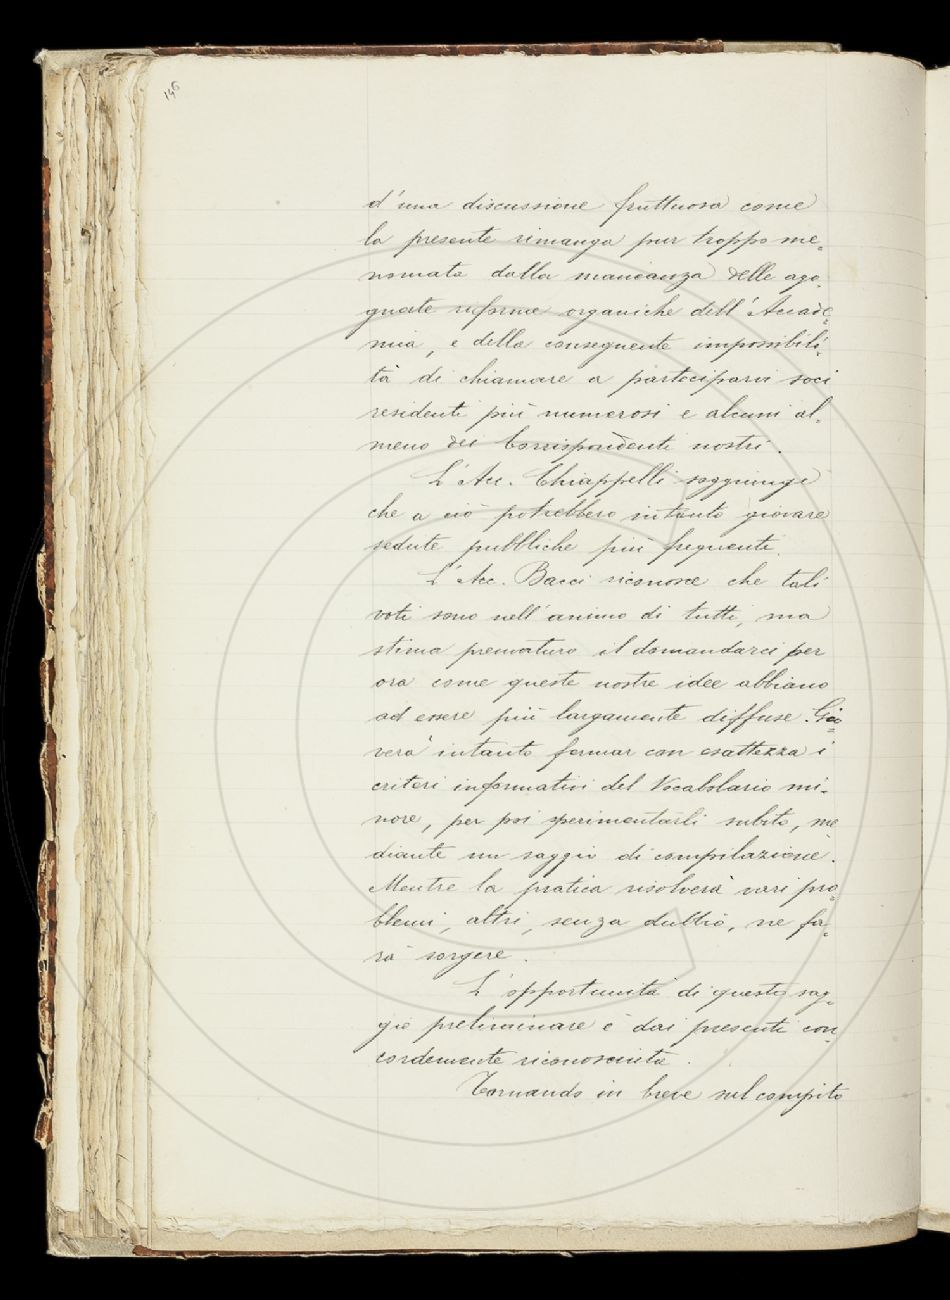 146
d'una discussione fruttuosa come
la presente rimanga pur troppo me-
nomata dalla mancanza delle ago-
gnate riforme organiche dell'Accade-
mia, e della conseguente impossibili-
tà di chiamare a parteciparvi soci
residenti più numerosi e alcuni al-
meno dei Corrispondenti nostri.
L'Acc. Chiappelli soggiunge
che a ciò potrebbero intanto giovare
sedute pubbliche più frequenti.
L'Acc. Bacci riconosce che tali
voti sono nell'animo di tutti, ma
stima prematuro il domandarci per
ora come queste nostre idee abbiano
ad essere più largamente diffuse. Gio-
verà intanto fermar con esattezza i
criteri informativi del Vocabolario mi-
nore, per poi sperimentarli subito, me
diante un saggio di compilazione.
Mentre la pratica risolverà vari pro-
blemi, altri, senza dubbio, ne fa-
rà sorgere.
L'opportunità di questo sag-
gio preliminare è dai presenti con-
cordemente riconosciuta.
Tornando in breve sul compito